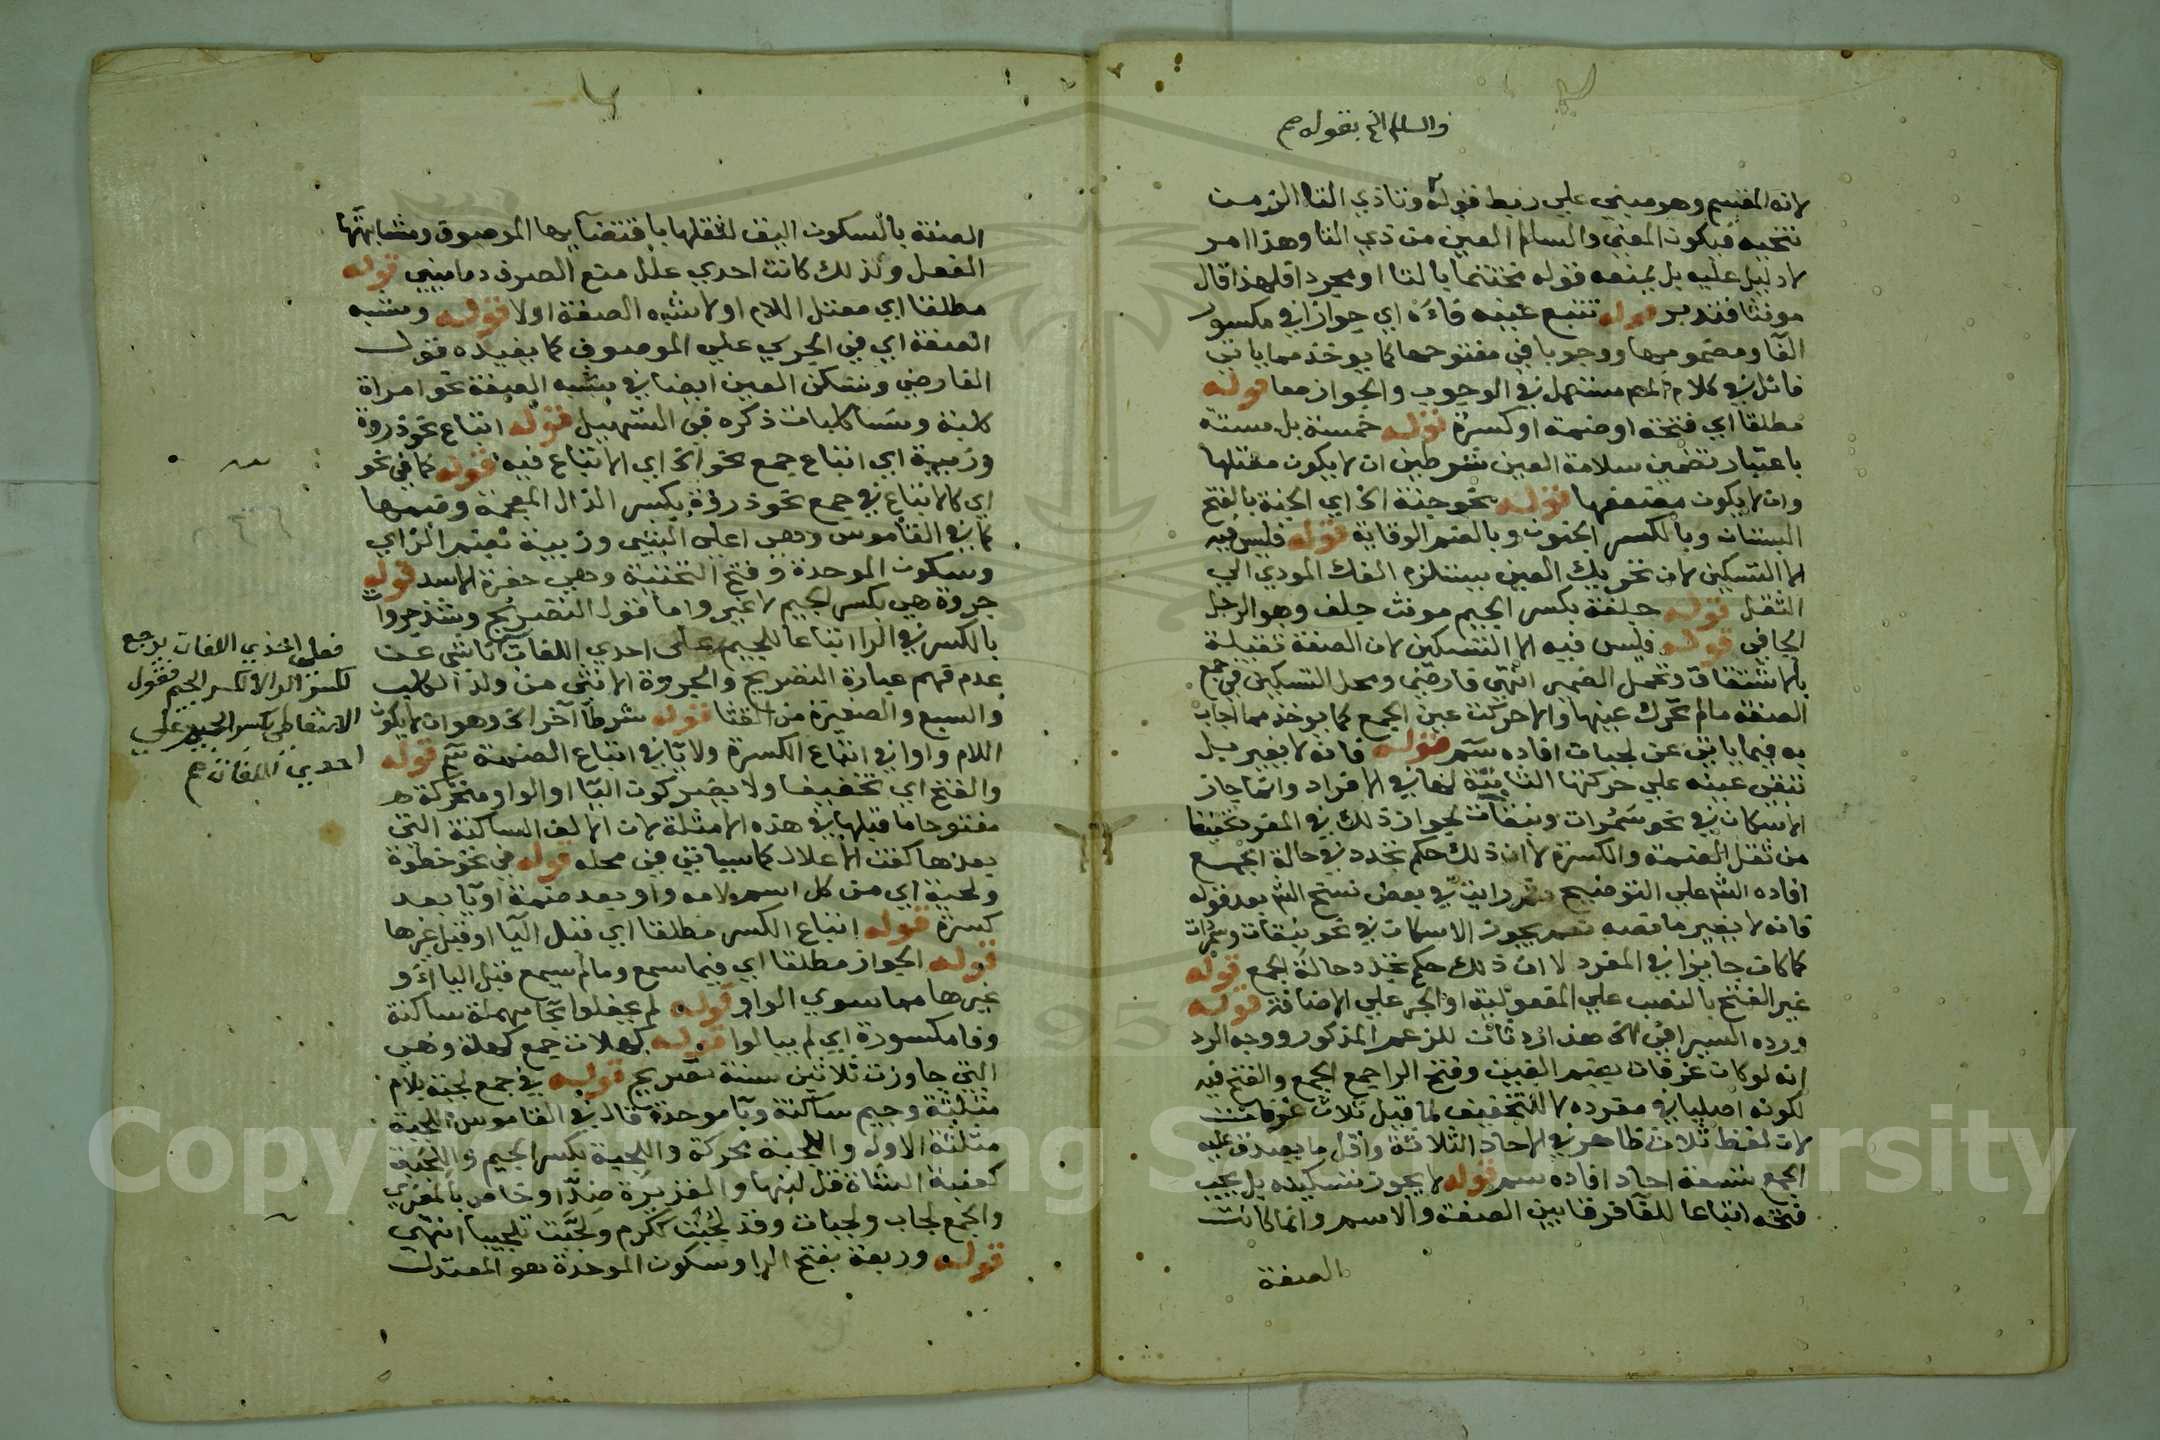 والسالم الخ بقوله صح
لانه المقسم وهو مبني علي ربط قوله وتناذي التا الزمت
نتحيه فيكون المعني والسالم العين من ذي التا وهذا امر
لا دليل عليه بل يمنعه قوله مختتما بالتا او مجردا فلهذا قال
مونثا فتدبر قوله تتبع عينه فاءه اي جوازا في مكسور
الفا ومضمومها ووجوبا في مفتوحها كما يوخذ مما ياتي
فاتل في كلام المص مستعمل في الوجوب والجواز معا قوله
مطلقا اي فتحة او ضمة او كسرة قوله خمسة بل ستة
باعتبار تضمين سلامة العين شرطين ان لا يكون معتلها
وان لا يكون مضعفها قوله نحو جنة الخ اي الجنة بالفتح
البستان وبالكسر الجنون وبالضم الوقاية قوله فليس فيه
الا التسكين لان تحريك العين يستلزم الفك المودي الي
الثقل قوله جلفة بكسر الجيم مونث جلف وهو الرجل
الجافي قوله فليس فيه الا التسكين لان الصفة ثقيلة
بالاشتقاق وتحمل الضمير انتهي فارضي ومحل التسكين في جمع
الصفة ما لم تحرك عينها والا حركت عين الجمع كما يوخذ مما اجاب
به فيما ياتي عن لجبات افاده سم قوله فانه لا يغير بل
تبقي عينه علي حركتها الثابتة لها في الافراد وانما جاز
الاسكان في نحو سمرات ونبقات لجواز ذلك في المفرد تخفيفا
من ثقل الضمة والكسرة لا ان ذلك حكم تجدد في حالة الجمع
افاده الش علي التوضيح ثم رايت في بعض نسخ الش بعد قوله
فانه لا يغير ما نصه نعم يجوز الاسكان في نحو نبقات وسمرات
كما كان جايزا في المفرد لا ان ذلك حكم تجدد حالة الجمع قوله
غير الفتح بالنصب علي المفعولية او الجر علي الاضافة قوله
ورده السيرافي الخ هذا رد ثالث للزعم المذكور ووجه الرد
انه لو كان غرفات بضم الغين وفتح الرا جمع الجمع والفتح فيه
لكونه اصليا في مفرده لا للتخفيف لما قيل ثلاث غرفات
لان لفظ ثلاث ظاهر في الاحاد الثلاثة واقل ما يصدق عليه
الجمع تسعة احاد افاده سم قوله لا يجوز تسكينه بل يجب
فتحه اتباعا للفا فرقا بين الصفة والاسم وانما كانت
الصفة
الصفة بالسكون اليق لثقلها باقتضايها الموصوف ومشابهتها
الفعل ولذلك كانت احدي علل منع الصرف دماميني قوله
مطلقا اي معتل اللام او لا شبه الصفة او لا قوله وشبه
الصفة اي في الجري علي الموصوف كما يفيده قول
الفارضي وتسكن العين ايضا في شبه الصفة نحو امراة
كلبة ونسا كلبات ذكره في التسهيل قوله اتباع نحو ذروة
وزبية اي اتباع جمع نحو الخ اي الاتباع فيه قوله كما في نحو
اي كالاتباع في جمع نحو ذروة بكسر الذال المعجمة وضمها
كما في القاموس وهي اعلي الشي وزبية بضم الزاي
وسكون الموحدة وفتح التحتية وهي حفرة الاسد قوله
جروة هي بكسر الجيم لا غير واما قول التصريح وشذ جروات
بالكسر في الرا اتباعا للجيم علي احدي اللغات ناشي عن
عدم فهم عبارة التصريح والجروة الانثي من ولد الكلب
والسبع والصغيرة من القثا قوله شرطا آخر الخ وهو ان لا يكون
اللام واوا في اتباع الكسرة ولا يا في اتباع الضمة سم قوله
والفتح اي تخفيفا ولا يضر كون اليا او الواو متحركة
مفتوحا ما قبلها في هذه الامثلة لان الالف الساكنة التي
بعدها كفت الاعلال كما سياتي في محله قوله في نحو خطوة
ولحية اي من كل اسم لامه واو بعد ضمة او يا بعد
كسرة قوله اتباع الكسر مطلقا اي قبل اليا او قبل غيرها
قوله الجواز مطلقا اي فيما سمع وما لم يسمع قبل الياء و
غيرها مما سوي الواو قوله لم يحفلوا بحا مهملة ساكنة
وفا مكسورة اي لم يبالوا قوله كهلات جمع كهلة وهي
التي جاوزت ثلاثين سنة تصريح قوله في جمع لجبة بلام
مثلثة وجيم ساكنة وبا موحدة قال في القاموس اللجبة
مثلثة الاول واللجبة محركة واللجبة بكسر الجيم واللجبة
كعنبة الشاة قل لبنها والغزيرة ضد او خاص بالمعزي
والجمع لجاب ولجبات وقد لجبت ككرم ولجبت تلجيبا انتهي
قوله وربعة بفتح الرا وسكون الموحدة هو المعتدل
فعلي احدي اللغات يرجع
لكسر الرا لا لكسر الجيم فقول
الاسقاطي بكسر الجيم علي
احدي اللغات صح